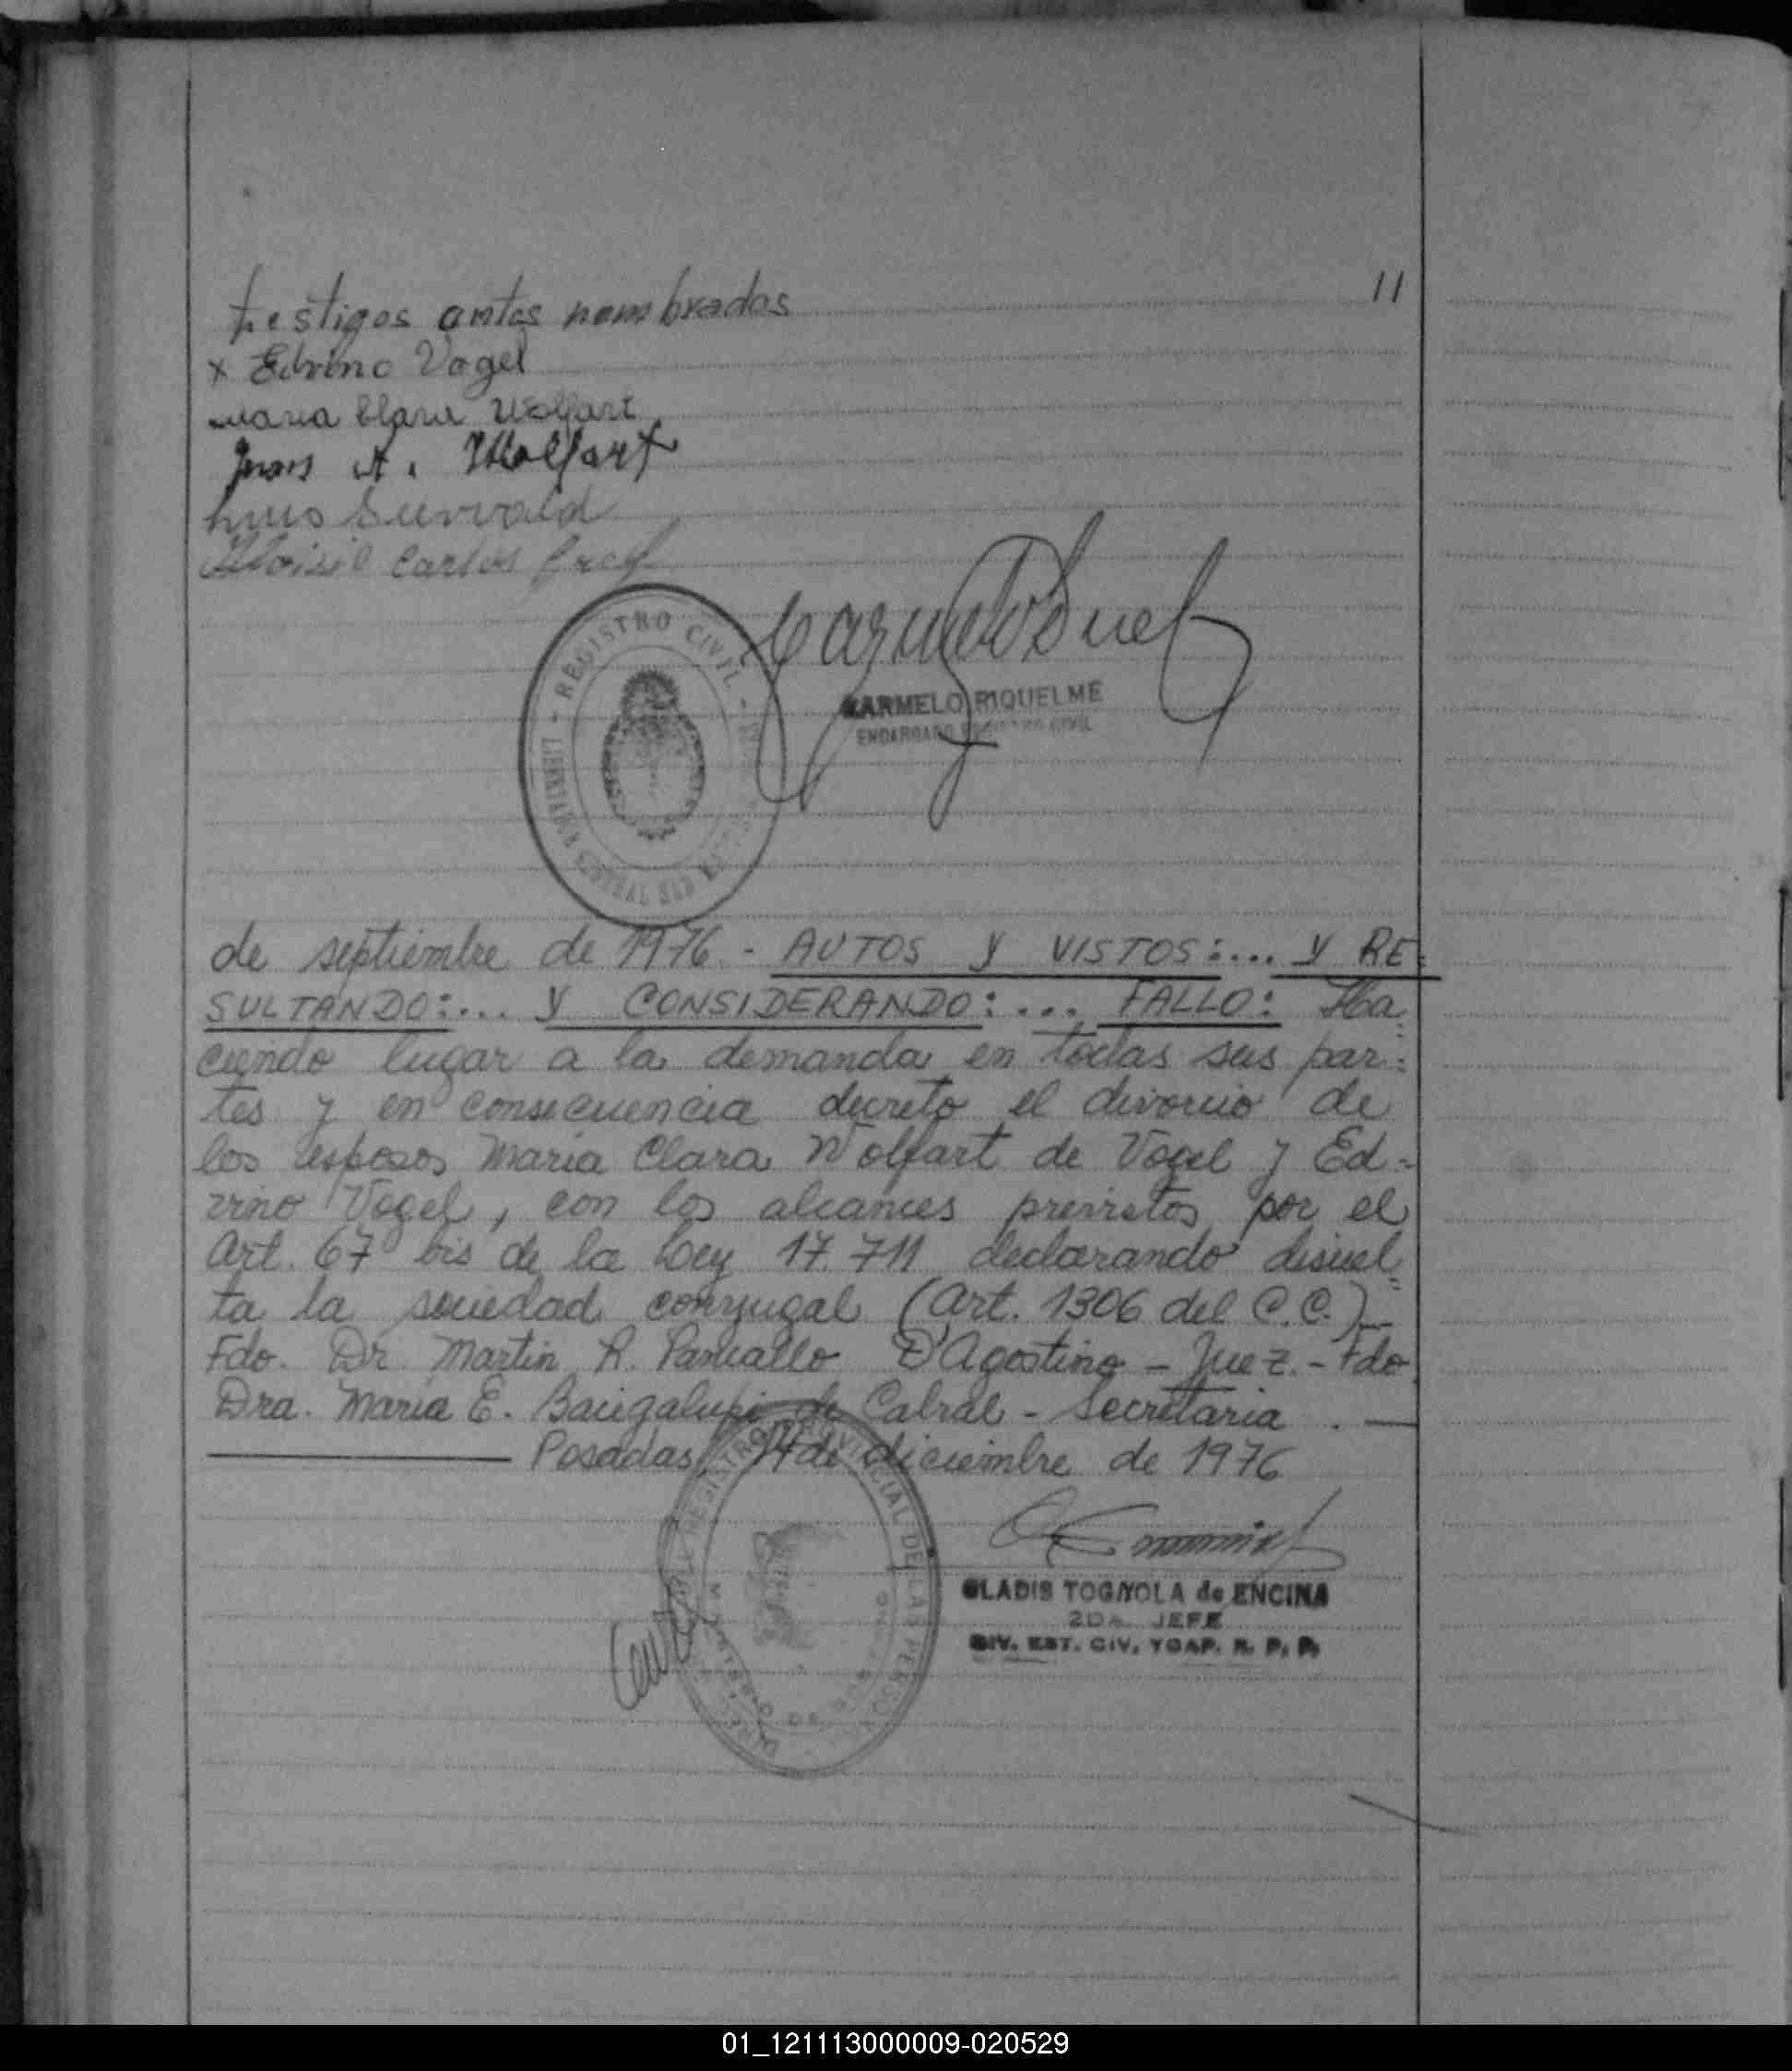 11
testigos antes nombrados
x Edvino Vogel
maria Clara Wolfart
Juan A. Wolfart
Luis
Carlos
REGISTRO CIVIL
CARMELO RIQUELME
ENCARGADO REGISTRO CIVIL
de septiembre de 1976.- AUTOS Y VISTOS:... Y RE=
SULTANDO:... Y CONSIDERANDO:... FALLO: Ha=
ciendo lugar a la demanda en todas sus par=
tes y en consecuencia decreto el divorcio de
los esposos María Clara Wolfart de Vogel y Ed=
vino Vogel, con los alcances previstos por el
Art. 67 bis de la Ley 17.711 declarando disuel=
ta la sociedad conyugal (Art. 1306 del C.C.)_
Fdo. Dr. Martin R. D'Agostino - Juez.- Fdo
Dra. María E. de Cabral - Secretaria.
Posadas, 14 de diciembre de 1976
GLADIS TOGNOLA de ENCINA
2DA. JEFE
DIV. EST. CIV. Y CAP. R. P. P.
01_121113000009-020529